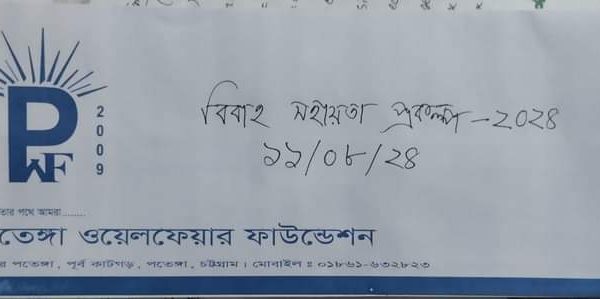 বিবাহ সহায়তা প্রকল্প - ২০২৪
১১/০৮/২৪
P
WF
2009
তার পথে আমরা........
তেঙ্গা ওয়েলফেয়ার ফাউন্ডেশন
র পতেঙ্গা, পূর্ব কাটগড়, পতেঙ্গা, চট্টগ্রাম। মোবাইল ঃ ০১৮৬১-৬৩২৮২৩